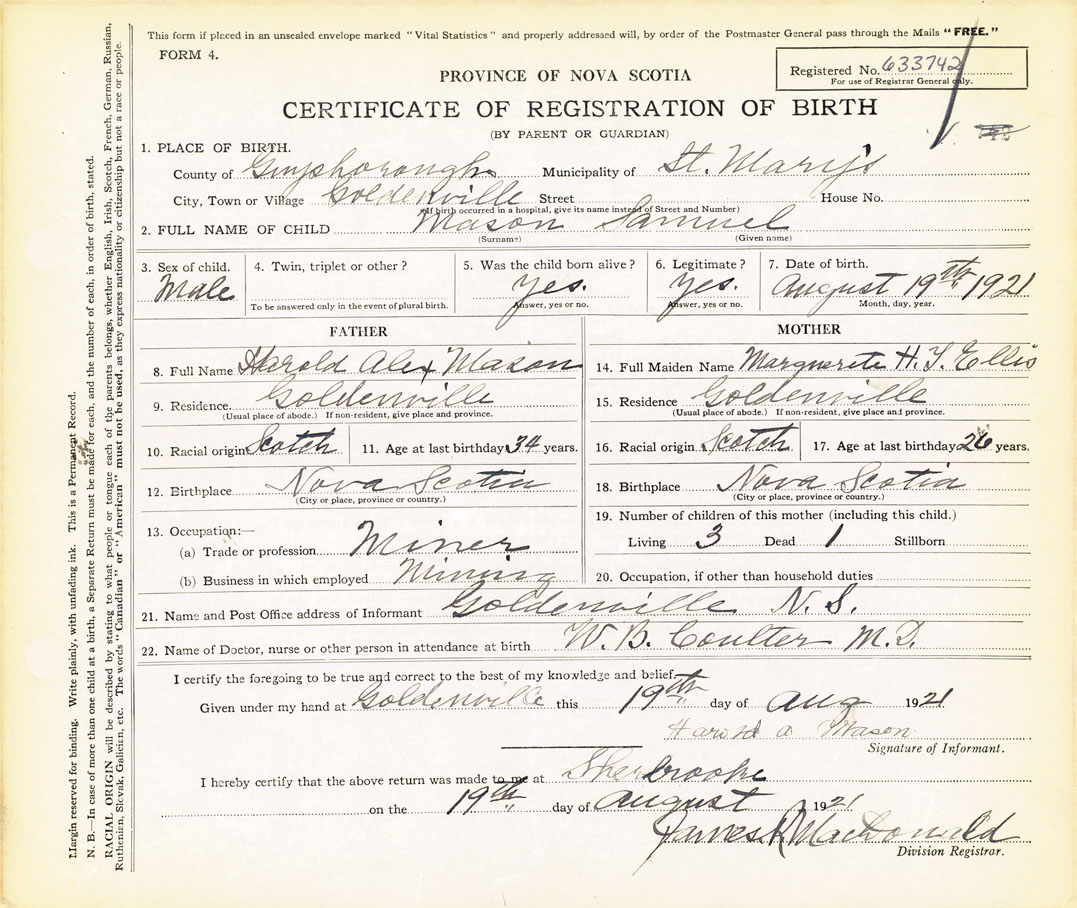 This form if placed in an unsealed envelope marked "Vital Statistics" and properly addressed will, by order of the Postmaster General pass through the Mails "FREE."
FORM 4.
Registered No. 633742
For use of Registrar General only.
PROVINCE OF NOVA SCOTIA
CERTIFICATE OF REGISTRATION OF BIRTH
(BY PARENT OR GUARDIAN)
1. PLACE OF BIRTH.
County of Guysborough Municipality of St. Mary's
City, Town or Village Goldenville Street House No.
(If birth occurred in a hospital, give its name instead of Street and Number)
2. FULL NAME OF CHILD Mason Samuel
(Surname) (Given name)
3. Sex of child. Male
4. Twin, triplet or other?
To be answered only in the event of plural birth.
5. Was the child born alive? Yes.
Answer, yes or no.
6. Legitimate? Yes.
Answer, yes or no.
7. Date of birth. August 19th 1921
Month, day, year.
FATHER
8. Full Name Harold Alex Mason
9. Residence. Goldenville
(Usual place of abode.) If non-resident, give place and province.
10. Racial origin Scotch 11. Age at last birthday 34 years.
12. Birthplace Nova Scotia
(City or place, province or country.)
13. Occupation:—
(a) Trade or profession Miner
(b) Business in which employed Mining
MOTHER
14. Full Maiden Name Marguerete H. Ellis
15. Residence Goldenville
(Usual place of abode.) If non-resident, give place and province.
16. Racial origin Scotch 17. Age at last birthday 26 years.
18. Birthplace Nova Scotia
(City or place, province or country.)
19. Number of children of this mother (including this child.)
Living 3 Dead 1 Stillborn
20. Occupation, if other than household duties
21. Name and Post Office address of Informant Goldenville N. S.
22. Name of Doctor, nurse or other person in attendance at birth W. B. Coulter M.D.
I certify the foregoing to be true and correct to the best of my knowledge and belief.
Given under my hand at Goldenville this 19th day of Aug 1921
Harold a Mason
Signature of Informant.
I hereby certify that the above return was made to me at Sherbrooke
on the 19th day of August 1921
James MacDonald
Division Registrar.
Margin reserved for binding. Write plainly, with unfading ink. This is a Permanent Record.
N. B.—In case of more than one child at a birth, a Separate Return must be made for each, and the number of each, in order of birth, stated.
RACIAL ORIGIN will be described by stating to what people or tongue each of the parents belongs, whether English, Irish, Scotch, French, German, Russian,
Ruthenian, Slovak, Galician, etc. The words "Canadian" or "American" must not be used, as they express nationality or citizenship but not a race or people.